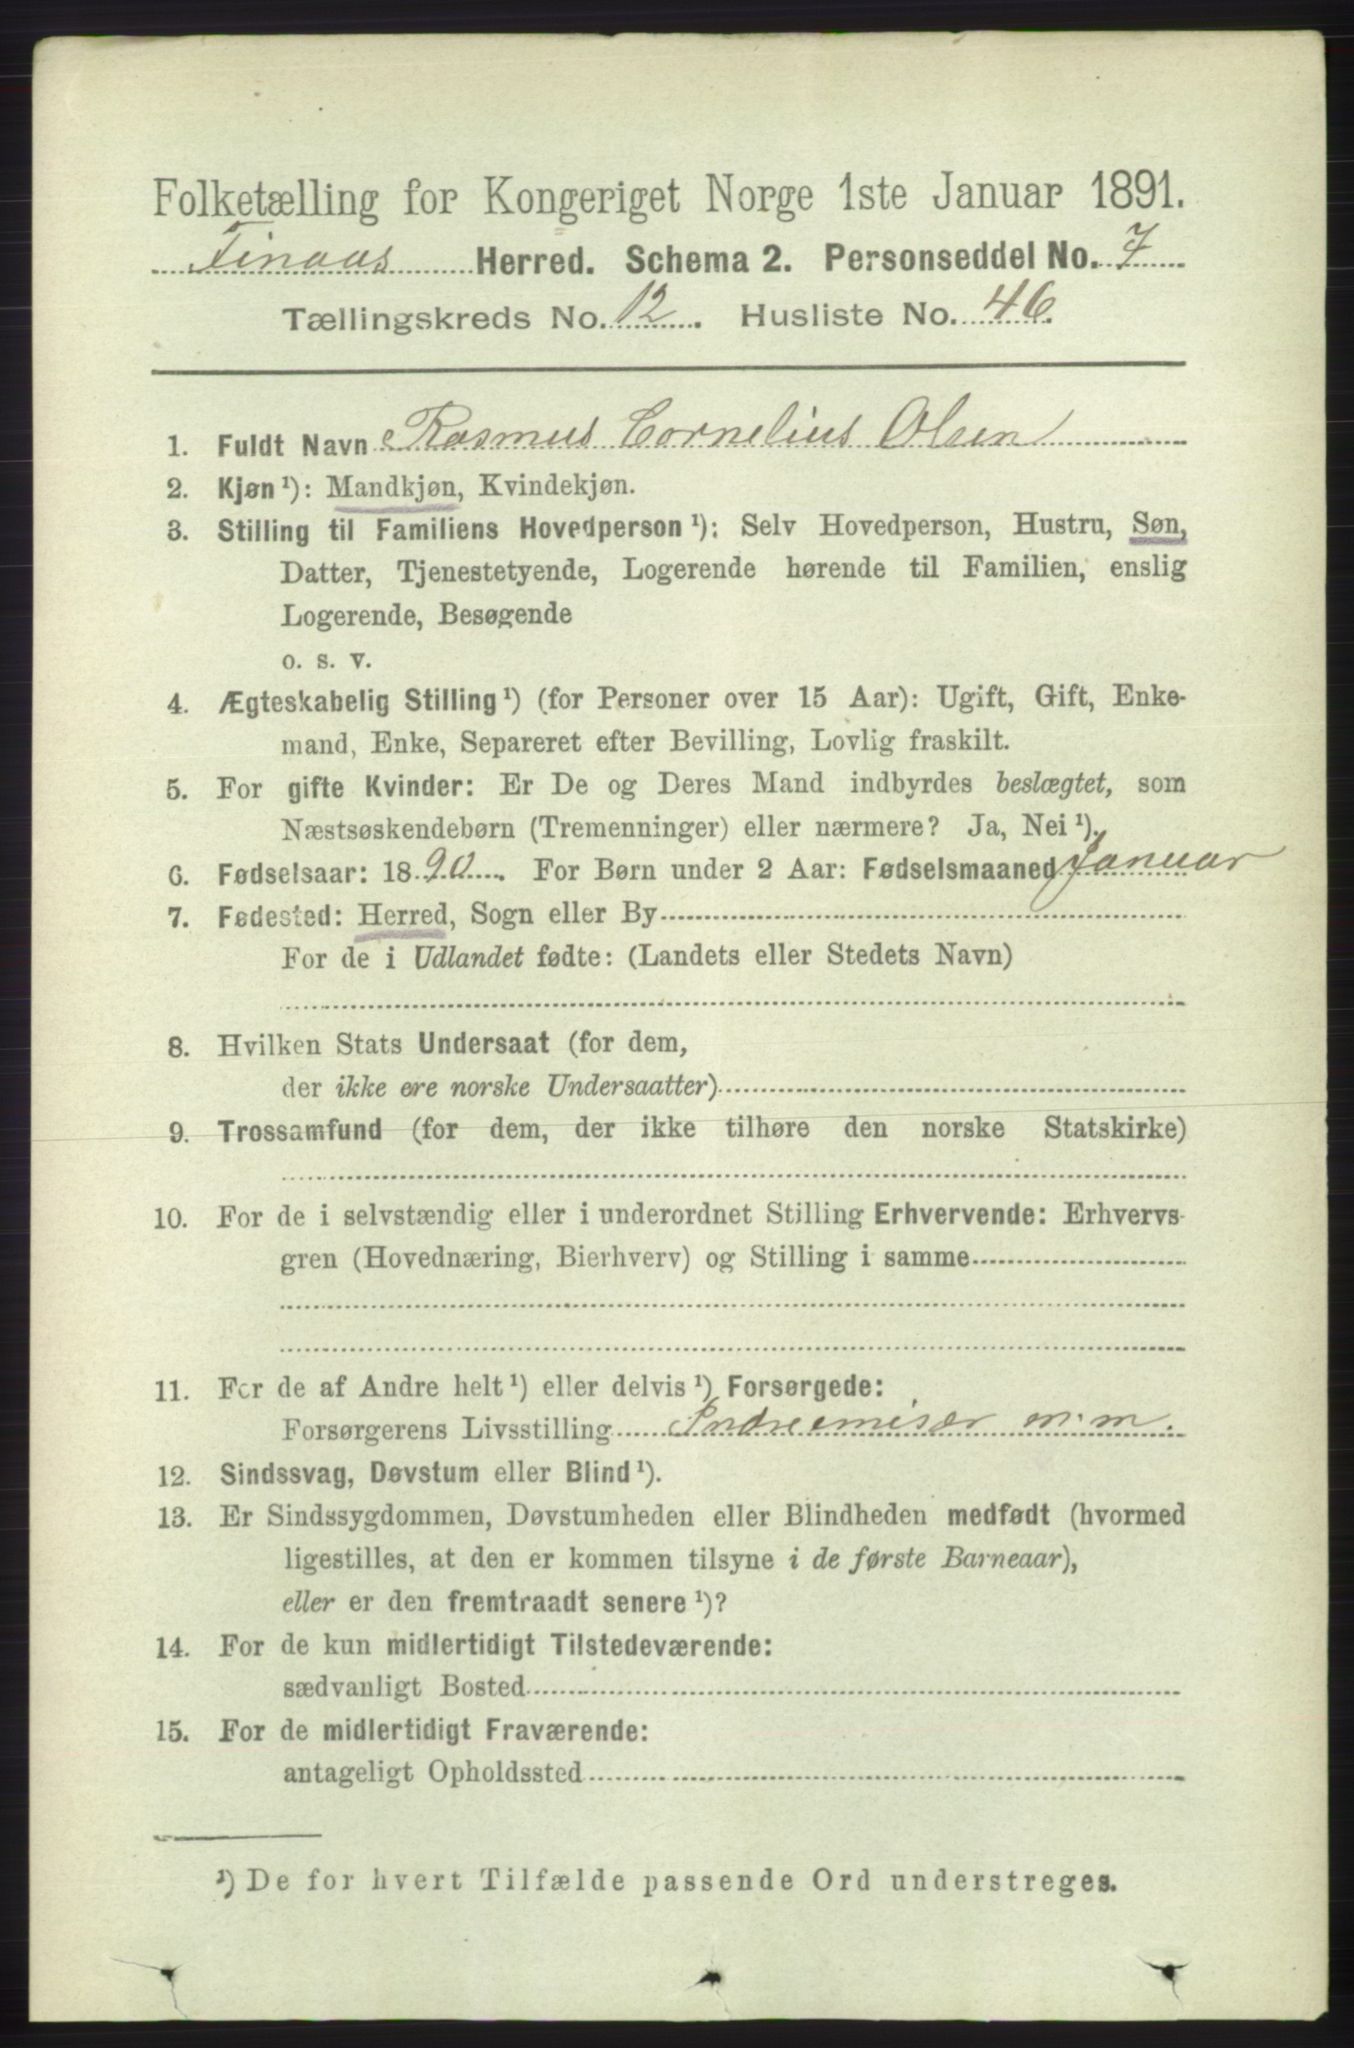 Folketælling for Kongeriget Norge 1ste Januar 1891.
Finaas Herred. Schema 2. Personseddel No. 7
Tællingskreds No. 12. Husliste No. 46.
1. Fuldt Navn Rasmus Cornelius Olsen
2. Kjøn¹): Mandkjøn, Kvindekjøn.
3. Stilling til Familiens Hovedperson¹): Selv Hovedperson, Hustru, Søn,
Datter, Tjenestetyende, Logerende hørende til Familien, enslig
Logerende, Besøgende
o. s. v.
4. Ægteskabelig Stilling¹) (for Personer over 15 Aar): Ugift, Gift, Enke-
mand, Enke, Separeret efter Bevilling, Lovlig fraskilt.
5. For gifte Kvinder: Er De og Deres Mand indbyrdes beslægtet, som
Næstsøskendebørn (Tremenninger) eller nærmere? Ja, Nei¹).
6. Fødselsaar: 1890. For Børn under 2 Aar: Fødselsmaaned Januar
7. Fødested: Herred, Sogn eller By
For de i Udlandet fødte: (Landets eller Stedets Navn)
8. Hvilken Stats Undersaat (for dem,
der ikke ere norske Undersaatter)
9. Trossamfund (for dem, der ikke tilhøre den norske Statskirke)
10. For de i selvstændig eller i underordnet Stilling Erhvervende: Erhvervs-
gren (Hovednæring, Bierhverv) og Stilling i samme
11. For de af Andre helt¹) eller delvis¹) Forsørgede:
Forsørgerens Livsstilling Indremisær m.m.
12. Sindssvag, Døvstum eller Blind¹).
13. Er Sindssygdommen, Døvstumheden eller Blindheden medfødt (hvormed
ligestilles, at den er kommen tilsyne i de første Barneaar),
eller er den fremtraadt senere¹)?
14. For de kun midlertidigt Tilstedeværende:
sædvanligt Bosted
15. For de midlertidigt Fraværende:
antageligt Opholdssted
¹) De for hvert Tilfælde passende Ord understreges.